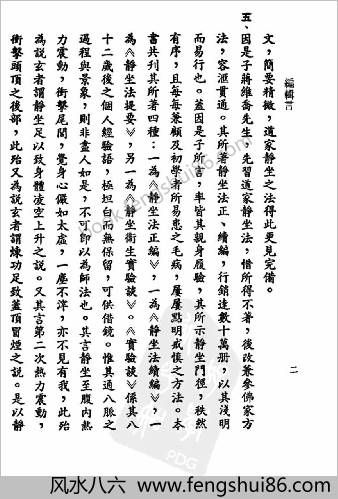 編輯言
二
文，簡要精微，道家靜坐之法得此更見完備。
五、因是子蔣維喬先生，先習道家靜坐法，惜所得不著，後改兼參佛家方
法，容滙貫通。其所著靜坐法正、續編，行銷達數十萬册，以其淺明
而易行也。蓋因是子所言，率皆其親身履驗，其所示靜坐門徑，秩然
有序，且每每兼顧及初學者所易患之毛病，屢屢點明戒慎之方法。本
書共列其所著四種：一為《靜坐法正編》，一為《靜坐法續編》，一
為《靜坐法提要》，另一為《靜坐衛生實驗談》。《實驗談》係其八
十二歲後之個人經驗語，極坦白而無保留，可供借鏡。惟其通八脈之
過程與景象，則非盡人如是，不可即以為師法也。其言靜坐至腹內熱
力震動，衝擊尾閭，覺身心儼如太虛，一塵不滓，亦不見有我，此殆
為說玄者謂靜坐足以致身體凌空上升之說。又其言第二次熱力震動，
衝擊頭頂之後部，此殆又為說玄者謂煉功足致蓋頂冒煙之說。是以靜
york.fengshui86.com
PDG
风水八六 www.fengshui86.com